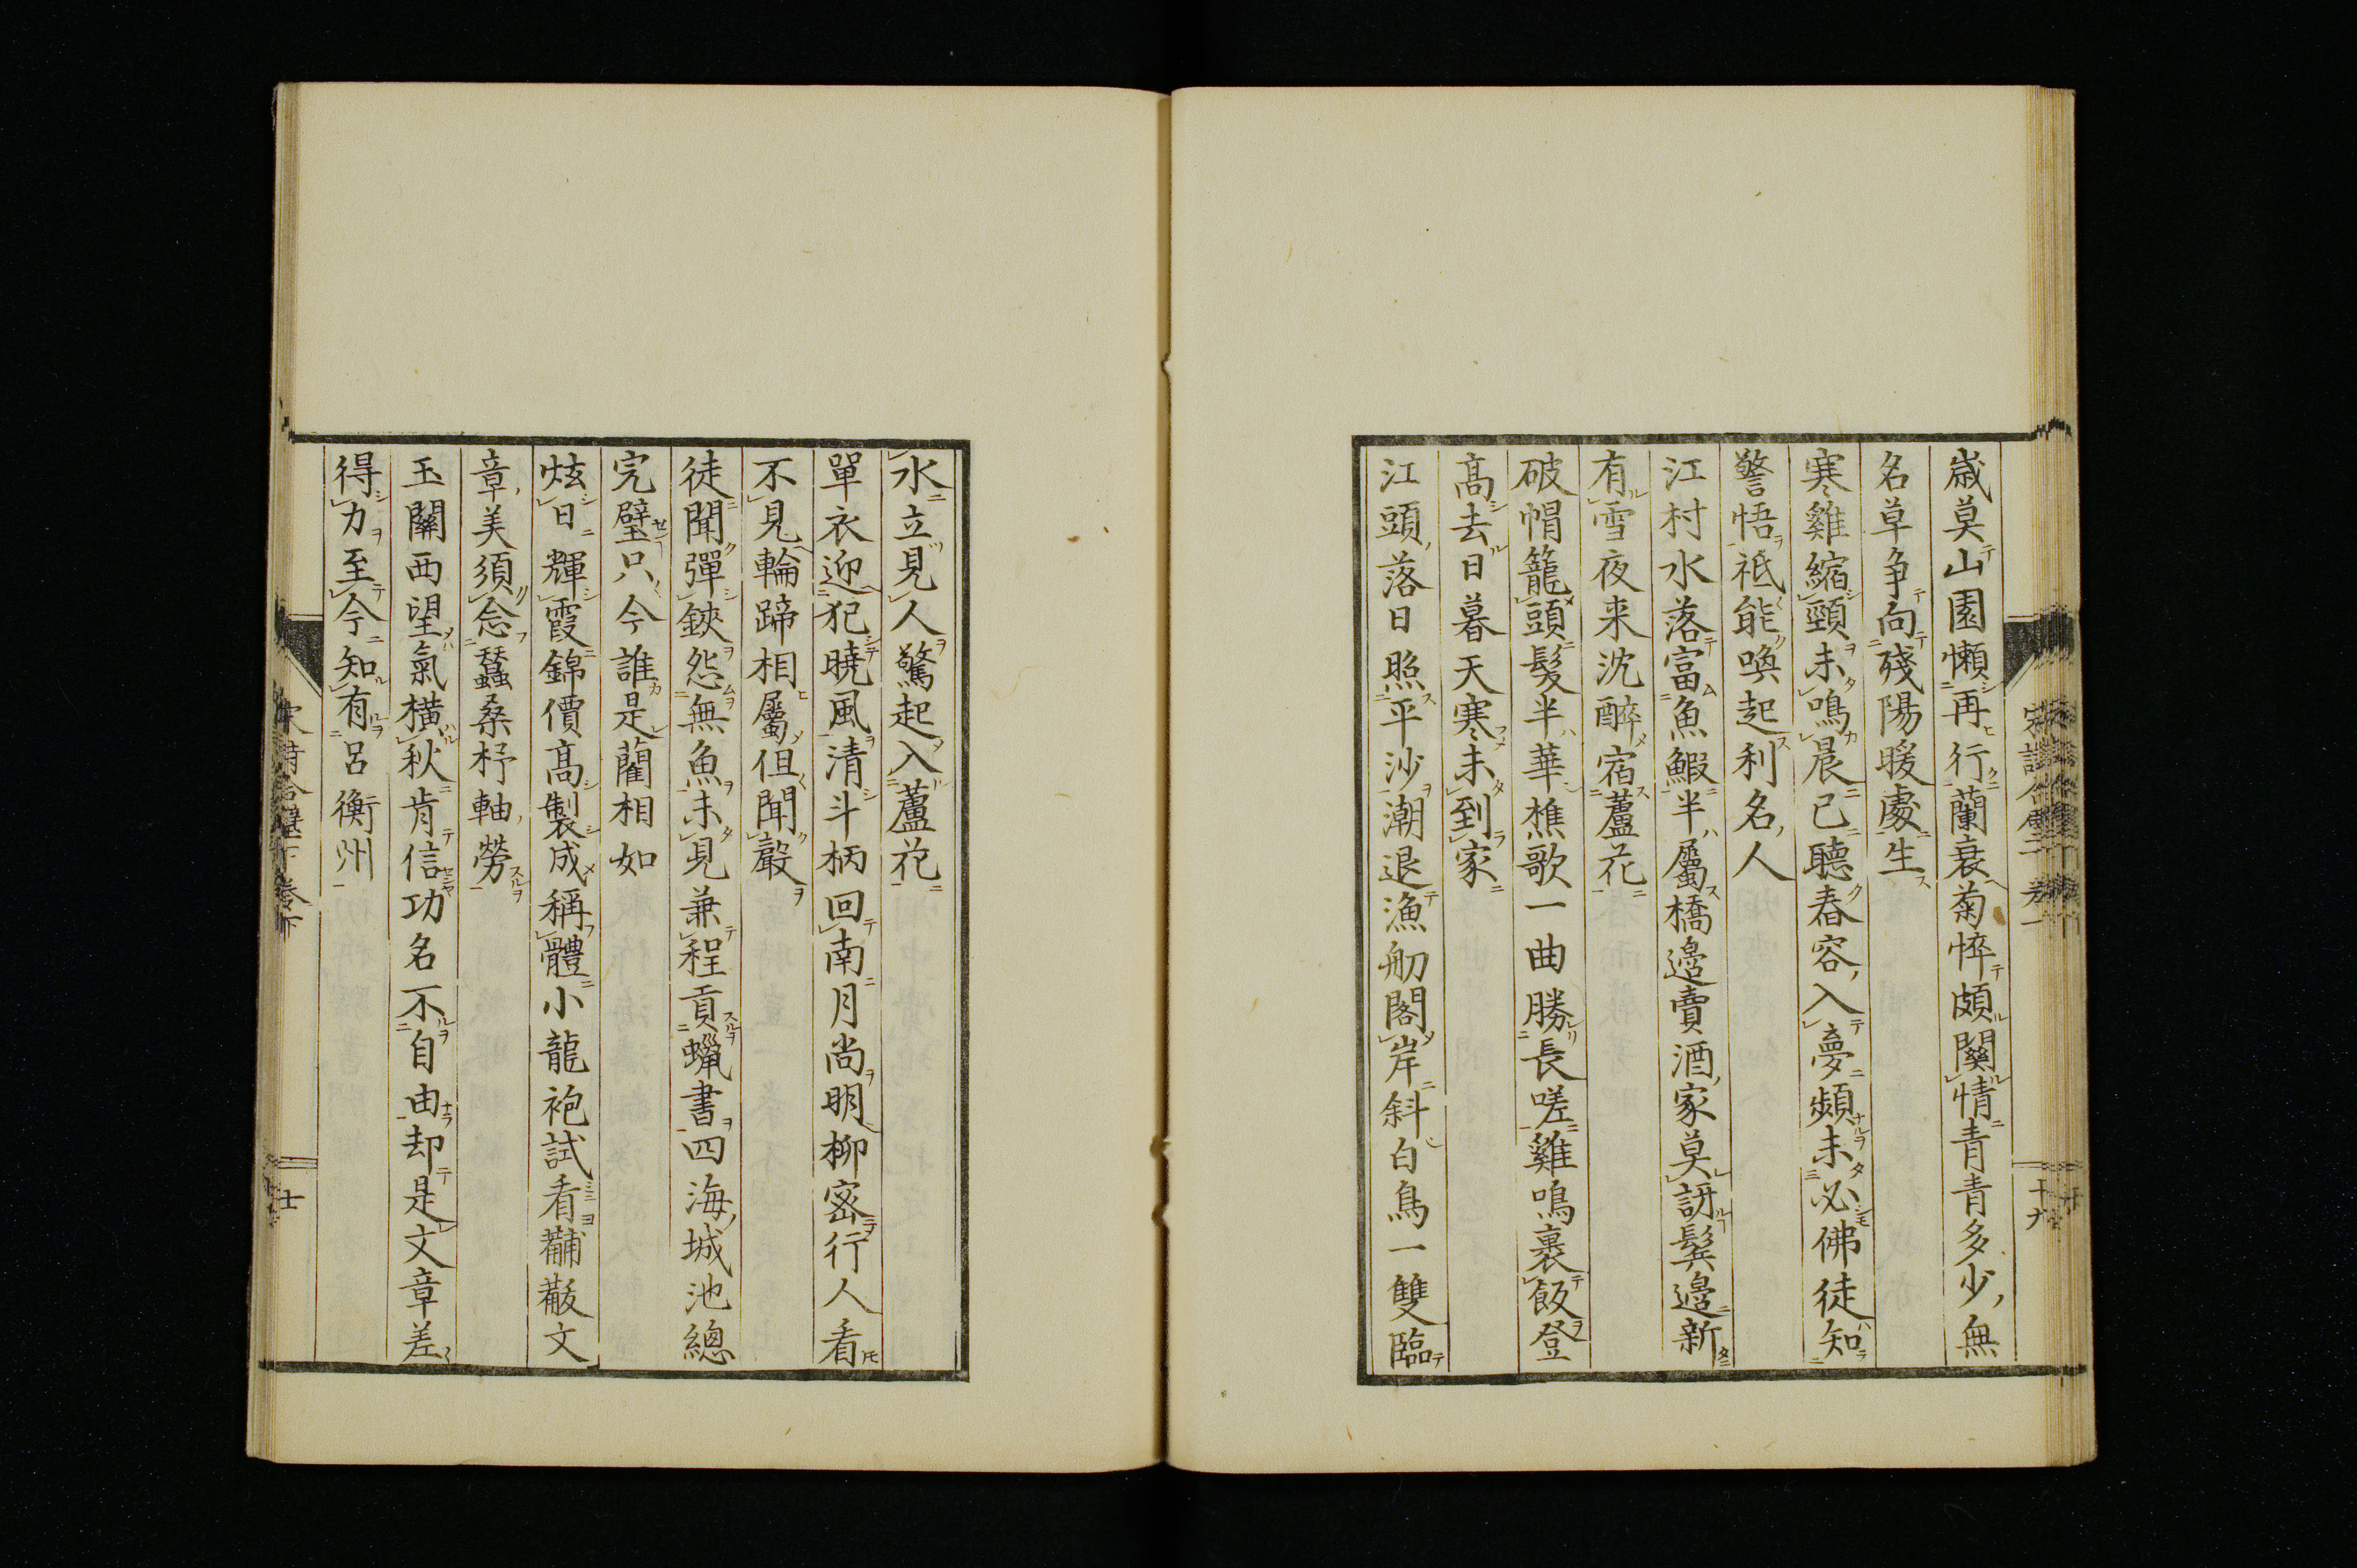 歳莫山園懶再行蘭衰菊悴頗關情青青多少無
名草争向殘陽暖處生
寒雞縮頸未鳴晨已聽舂容入夢頻未必佛徒知
警悟祗能喚起利名人
江村水落富魚鰕半屬橋邉賣酒家莫訝鬂邉新
有雪夜来沈醉宿蘆花
破帽籠頭髮半華樵歌一曲勝長嗟雞鳴裹飯登
髙去日暮天寒未到家
江頭落日照平沙潮退漁舠閣岸斜白鳥一雙臨
水立見人驚起入蘆花
單衣迎犯曉風清斗柄回南月尚明柳宻行人看
不見輪蹄相屬但聞聲
徒聞彈鋏怨無魚未見兼程貢蠟書四海城池總
完璧只今誰是藺相如
炫日輝霞錦價髙製成稱體小龍袍試看黼黻文
章美須念蠶桑杼軸勞
玉關西望氣橫秋肯信功名不自由却是文章差
得力至今知有呂衡州